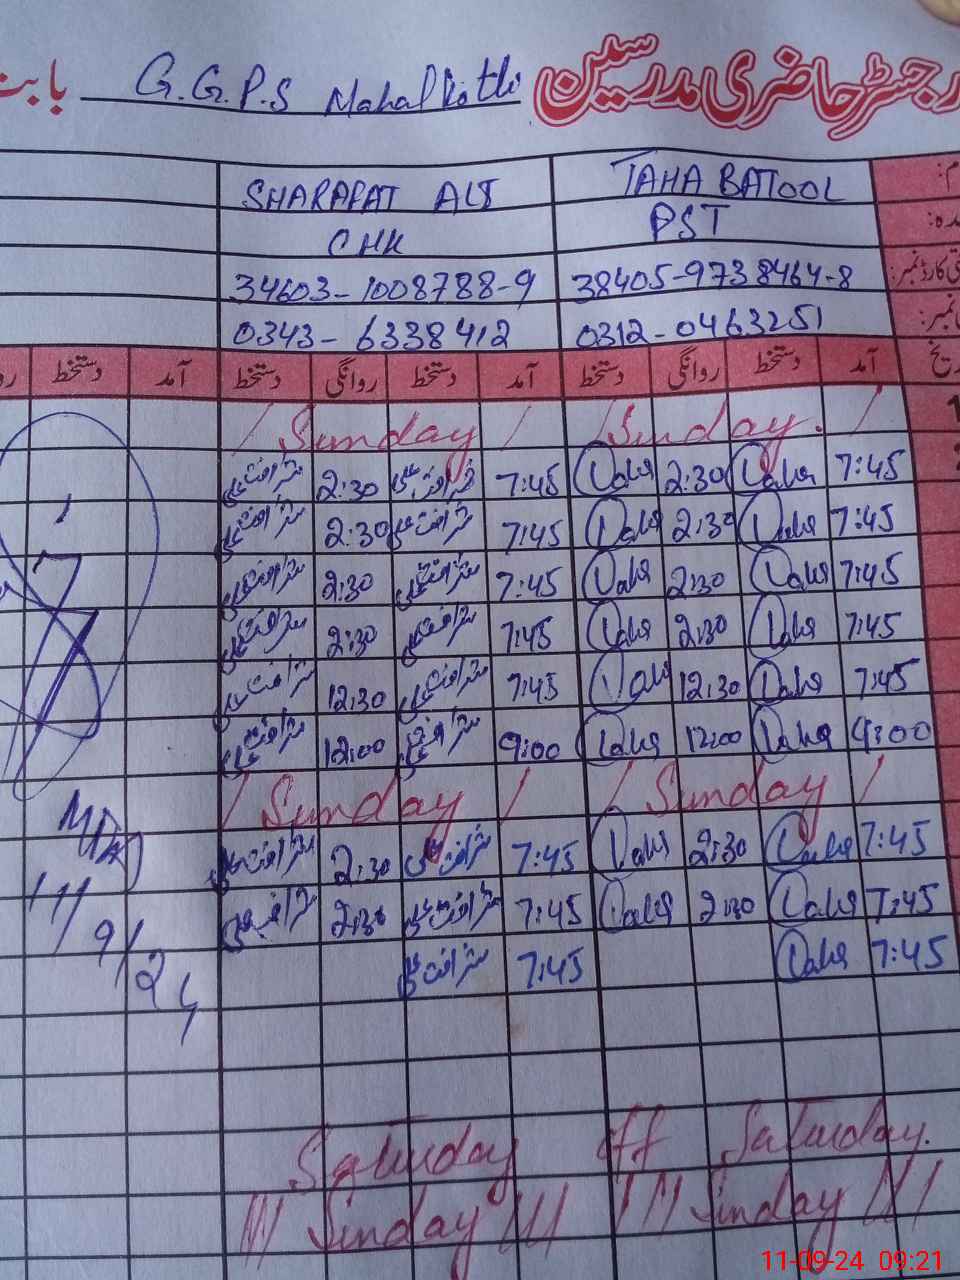 رجسٹر حاضری مدرسین G.G.P.S Mahal Kothi بابت
TAHA BATOOL SHARAFAT ALI
PST CHK
38405-9738464-8 34603-1008788-9
0312-0463251 0343-6338412
آمد دستخط روانگی دستخط آمد دستخط روانگی دستخط آمد دستخط
1 / Sunday. / / Sunday /
7:45 Taha 2:30 Taha 7:45 شرافت علی 2:30 شرافت علی
7:45 Taha 2:30 Taha 7:45 شرافت علی 2:30 شرافت علی
7:45 Taha 2:30 Taha 7:45 شرافت علی 2:30 شرافت علی
7:45 Taha 2:30 Taha 7:45 شرافت علی 2:30 شرافت علی
7:45 Taha 12:30 Taha 7:45 شرافت علی 12:30 شرافت علی
9:00 Taha 12:00 Taha 9:00 شرافت علی 12:00 شرافت علی
/ Sunday / / Sunday /
7:45 Taha 2:30 Taha 7:45 شرافت علی 2:30 شرافت علی
7:45 Taha 2:30 Taha 7:45 شرافت علی 2:30 شرافت علی
7:45 Taha 7:45 شرافت علی
11/9/24
Saturday off Saturday.
/// Sunday /// /// Sunday ///
11-09-24 09:21